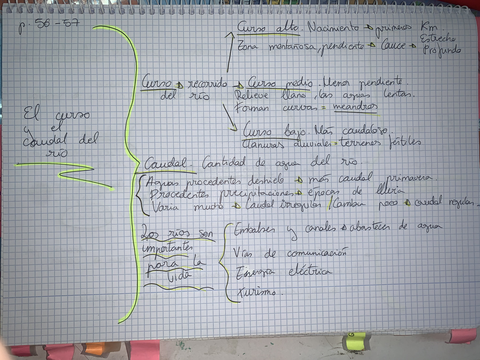 p. 56-57
El curso
y el
caudal del
río
Curso → recorrido
del río
Curso alto. Nacimiento → primeros Km
Zona montañosa, pendiente → Cauce → Estrecho
Profundo
Curso medio. Menos pendiente
Relieve llano, las aguas lentas.
Forman curvas = meandros
Curso bajo. Más caudaloso.
Llanuras aluviales = terrenos fértiles
Caudal. Cantidad de agua del río
Aguas procedentes deshielo → más caudal primavera
Procedentes precipitaciones → épocas de lluvia
Varía mucho → Caudal Irregular / Cambia poco → caudal regular.
Los ríos son
importantes
para la
vida
Embalses y canales → abastecen de agua
Vías de comunicación
Energía eléctrica
Turismo.